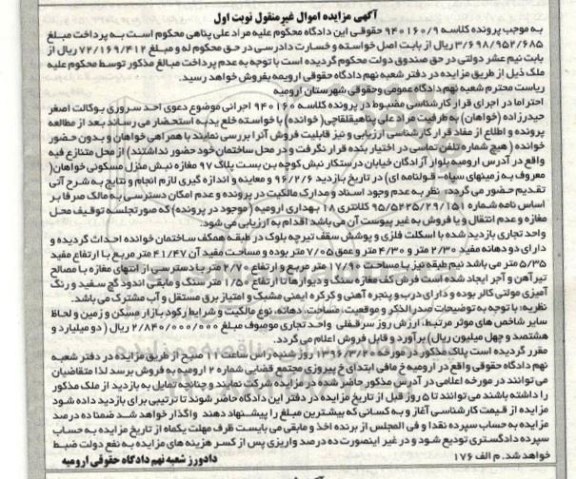 آگهی مزایده اموال غیرمنقول نوبت اول
به موجب پرونده کلاسه ۹۴۰۱۶۰/۹ حقوقی این دادگاه محکوم علیه مراد علی پناهی محکوم است به پرداخت مبلغ
۳/۶۹۸/۹۵۲/۶۸۵ ریال از بابت اصل خواسته و خسارت دادرسی در حق محکوم له و مبلغ ۷۲/۱۶۹/۴۱۲ ریال از
بابت نیم عشر دولتی در حق صندوق دولت محکوم گردیده است با توجه به عدم پرداخت مبالغ مذکور توسط محکوم علیه
ملک ذیل از طریق مزایده در دفتر شعبه نهم دادگاه حقوقی ارومیه بفروش خواهد رسید.
ریاست محترم شعبه نهم دادگاه عمومی وحقوقی شهرستان ارومیه
احتراما در اجرای قرار کارشناسی مضبوط در پرونده کلاسه ۹۴۰۱۶۰ اجرائی موضوع دعوی احد سروری بوکالت اصغر
حیدرزاده (خواهان) به طرفیت مراد علی پناهی قیقلاقی( خوانده) با خواسته خلع ید به استحضار می رساند بعد از مطالعه
پرونده و اطلاع از مفاد قرار کارشناسی ارزیابی و نیز قابلیت فروش آنرا بررسی نمایند با همراهی خواهان و بدون حضور
خوانده ( هیچ شماره تلفن تماسی در اختیار بنده قرار نگرفت و در محل ساختمان خود حضور نداشتند) از محل متنازع فیه
واقع در آدرس ارومیه بلوار آزادگان خیابان درستکار نبش کوچه بن بست پلاک ۹۷ مغازه نبش منزل مسکونی خواهان(
معروف به زمینهای سپاه- قولنامه ای) در تاریخ بازدید ۹۶/۲/۶ و معاینه و اندازه گیری لازم انجام و نتایج به شرح آتی
تقدیم حضور می گردد: نظر به عدم وجود اسناد و مدارک مالکیت در پرونده و عدم امکان دسترسی به مالک صرفا بر
اساس نامه شماره ۹۵/۵۲۲۵/۲۹/۱۵۱ کلانتری ۱۸ بهداری ارومیه ( موجود در پرونده) که صورتجلسه توقیف محل
مغازه و عدم انتقال و یا فروش به غیر پیوست آن می باشد اقدام به ارزیابی می شود.
واحد تجاری بازدید شده با اسکلت فلزی و پوشش سقف تیرچه بلوک در طبقه همکف ساختمان خوانده احداث گردیده و
دارای دو دهانه مفید ۲/۳۰ متر و ۴/۳۰ متر و عمق ۷/۰۵ متر بوده و مساحت مفید آن ۴۱/۴۷ متر مربع با ارتفاع مفید
۵/۳۵ متر می باشد نیم طبقه نیز با مساحت ۱۷/۹۰ متر مربع و ارتفاع ۲/۷۰ متر با دسترسی از انتهای مغازه با مصالح
تیرآهن و آجر ایجاد شده است فرش کف مغازه سنگ و دیوارها تا ارتفاع ۱/۵۰ متر سنگ و مابقی اندود گچ سفید و رنگ
آمیزی مولتی کالر بوده و دارای درب و پنجره آهنی و کرکره ایمنی مشبک و امتیاز برق مستقل و آب مشترک می باشد.
نظریه: با توجه به توضیحات صدر الذکر و موقعیت، مساحت، دهانه، نوع مالکیت و شرایط رکود بازار مسکن و زمین و لحاظ
سایر شاخص های موثر مرتبط، ارزش روز سرقفلی واحد تجاری موصوف مبلغ ۲/۸۴۰/۰۰۰/۰۰۰ ریال ( دو میلیارد و
هشتصد و چهل میلیون ریال) برآورد و قابل فروش اعلام می گردد.
مقرر گردیده است پلاک مذکور در مورخه ۱۳۹۶/۳/۲۰ روز شنبه راس ساعت ۱۱ صبح از طریق مزایده در دفتر شعبه
نهم دادگاه حقوقی واقع در ارومیه خ مافی ابتدای خ پیروزی مجتمع قضایی شماره ۲ ارومیه به فروش برسد لذا متقاضیان
می توانند در مورخه اعلامی در آدرس مذکور حاضر شده در مزایده شرکت نمایند و چنانچه تمایل به بازدید از ملک مذکور
را داشته باشند می توانند تا ۵ روز قبل از تاریخ مزایده در دفتر این دادگاه حاضر شوند تا ترتیبی برای بازدید داده شود
مزایده از قیمت کارشناسی آغاز و به کسانی که بیشترین مبلغ را پیشنهاد دهند واگذار خواهد شد ضمنا ده درصد
مزایده به حساب سپرده نقدا و فی المجلس از برنده اخذ و مابقی می بایست ظرف مهلت یکماه از تاریخ مزایده به حساب
سپرده دادگستری تودیع شود و در غیر اینصورت ده درصد واریزی پس از کسر هزینه های مزایده به نفع دولت ضبط
خواهد شد. م الف ۱۷۶
دادورز شعبه نهم دادگاه حقوقی ارومیه